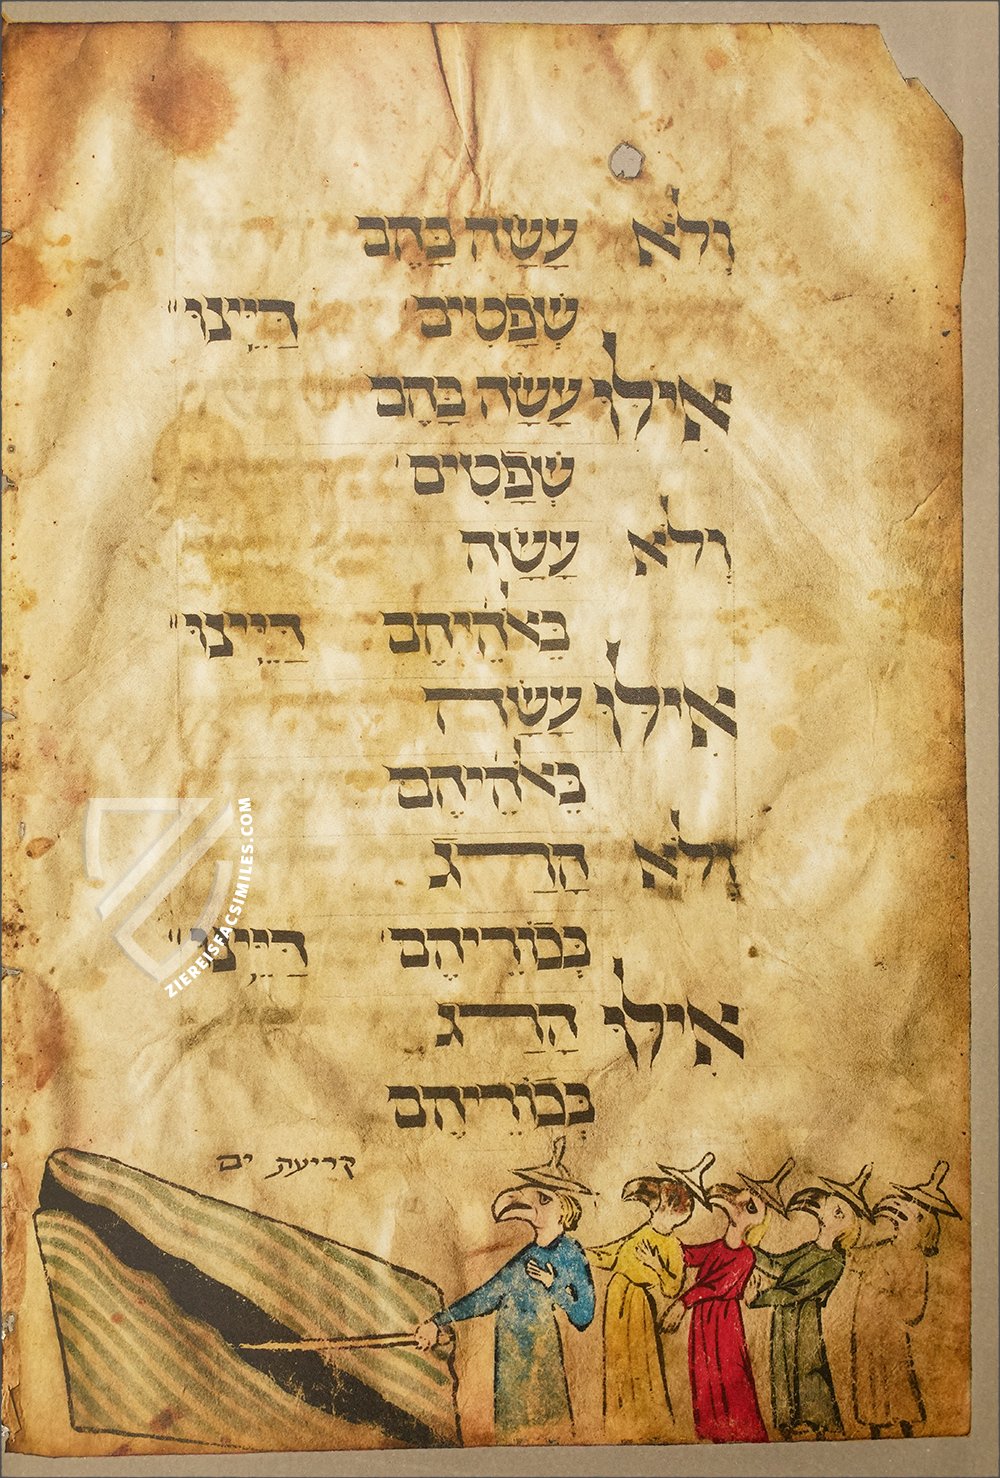 וְלֹא עָשָׂה בָּהֶם
שְׁפָטִים דַּיֵּינוּ״
אִילּוּ עָשָׂה בָּהֶם
שְׁפָטִים
וְלֹא עָשָׂה
בֵּאלֹהֵיהֶם דַּיֵּינוּ״
אִילּוּ עָשָׂה
בֵּאלֹהֵיהֶם
וְלֹא הָרַג
בְּכוֹרֵיהֶם דַּיֵּינוּ״
אִילּוּ הָרַג
בְּכוֹרֵיהֶם
קריעת ים
ZIEREISFACSIMILES.COM